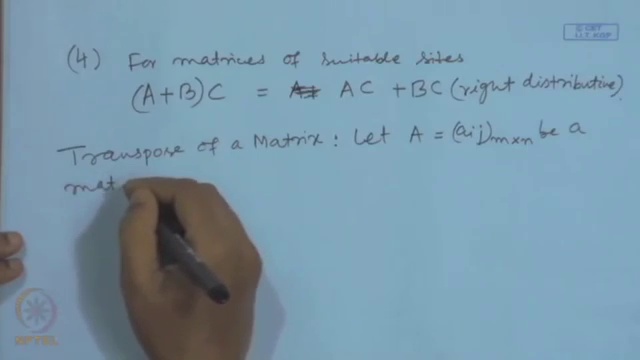 © CET
I.I.T. KGP
(4) For matrices of suitable sites
(A+B)C = AC + BC (right distributive)
Transpose of a Matrix : Let A = (aij)m×n be a
mat
NPTEL